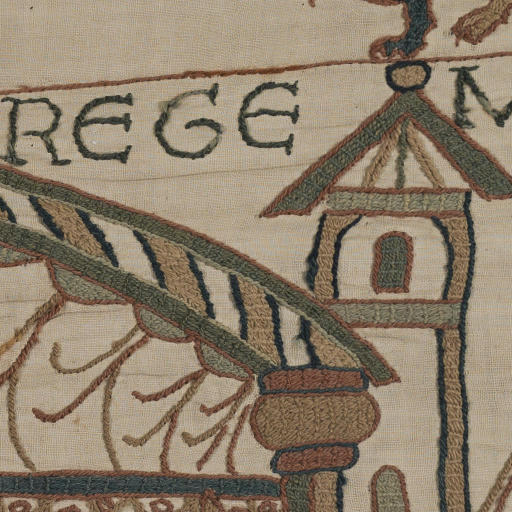 REGE M